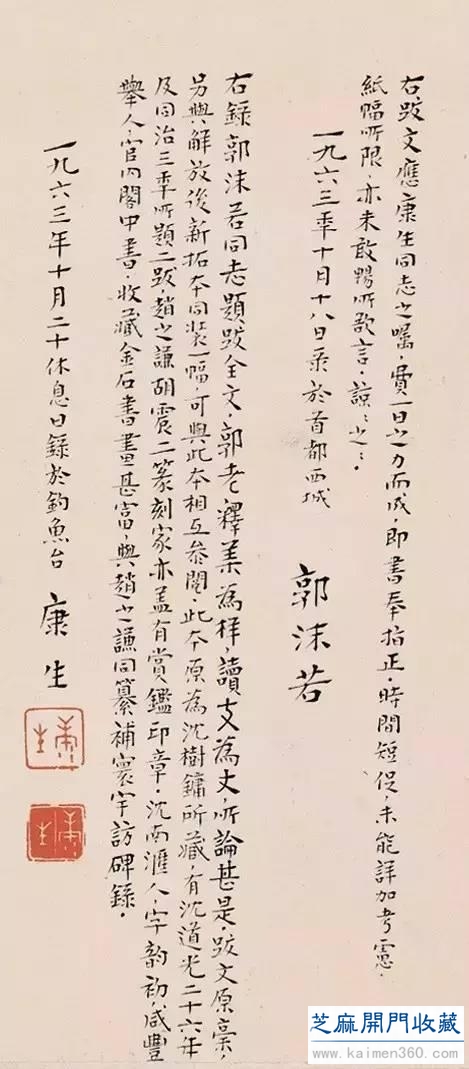 右跋文應康生同志之囑，費一日之力而成，即書奉指正。時間短促，未能詳加考慮。
紙幅所限，亦未敢暢所欲言，諒〻之〻。
一九六三季十月十八日录於首都西城
郭沫若
右錄郭沫若同志題跋全文。郭老釋羕為样，讀支為丈，所論甚是。跋文原稾，
另與解放後新拓本同装一幅，可與此本相互參閱。此本原為沈樹鏞所藏，有沈道光二十六年
及同治三季所題二跋，趙之謙胡震二篆刻家亦盖有賞鑑印章。沈南滙人，字韵初，咸豐
舉人，官内閣中書，收藏金石書畫甚富，與趙之謙同纂補寰宇訪碑錄。
一九六三年十月二十休息日錄於釣魚台 康生
芝麻開門收藏
www.kaimen360.com